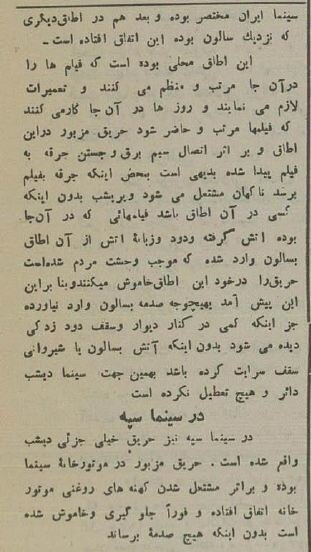 سینما ایران مختصر بوده و بعد هم در اطاق دیگری
که نزدیك سالون بوده این اتفاق افتاده است ـ
این اطاق محلی بوده است که فیلم ها را
در آن جا مرتب و منظم می کنند و تعمیرات
لازم می نمایند و روز ها در آن جا کار می کنند
که فیلمها مرتب و حاضر شود حریق مزبور در این
اطاق و بر اثر اتصال سیم برق و جستن جرقه به
فیلم پیدا شده بدیهی است بمحض اینکه جرقه بفیلم
برسد ناگهان مشتعل می شود و پریشب بدون اینکه
کسی در آن اطاق باشد فیلمهائی که در آن جا
بوده آتش گرفته و دود و زبانهٔ آتش از آن اطاق
بسالون وارد شده که موجب وحشت مردم شده است
حریق را در خود این اطاق خاموش میکنند و بنابر این
این پیش آمد بهیچوجه صدمه بسالون وارد نیاورده
جز اینکه کمی در کنار دیوار و سقف دود زدگی
دیده می شود بدون اینکه آتش بسالون یا شیروانی
سقف سرایت کرده باشد بهمین جهت سینما دیشب
دائر و هیچ تعطیل نکرده است
در سینما سپه
در سینما سپه نیز حریق خیلی جزئی دیشب
واقع شده است . حریق مزبور در موتورخانهٔ سینما
بوده و براثر مشتعل شدن کهنه های روغنی موتور
خانه اتفاق افتاده و فوراً جلو گیری و خاموش شده
است بدون اینکه هیچ صدمهٔ برساند